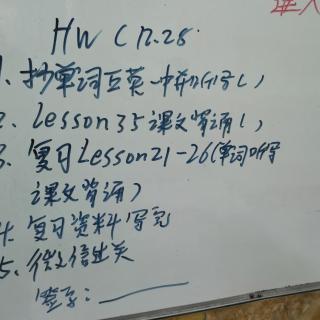 HW (12.28.
1、抄单词五英一中并听写( )
2、Lesson 35 课文背诵( )
3、复习Lesson21-26(单词听写
课文背诵)
4、复习资料写完
5、微信过关
签字：